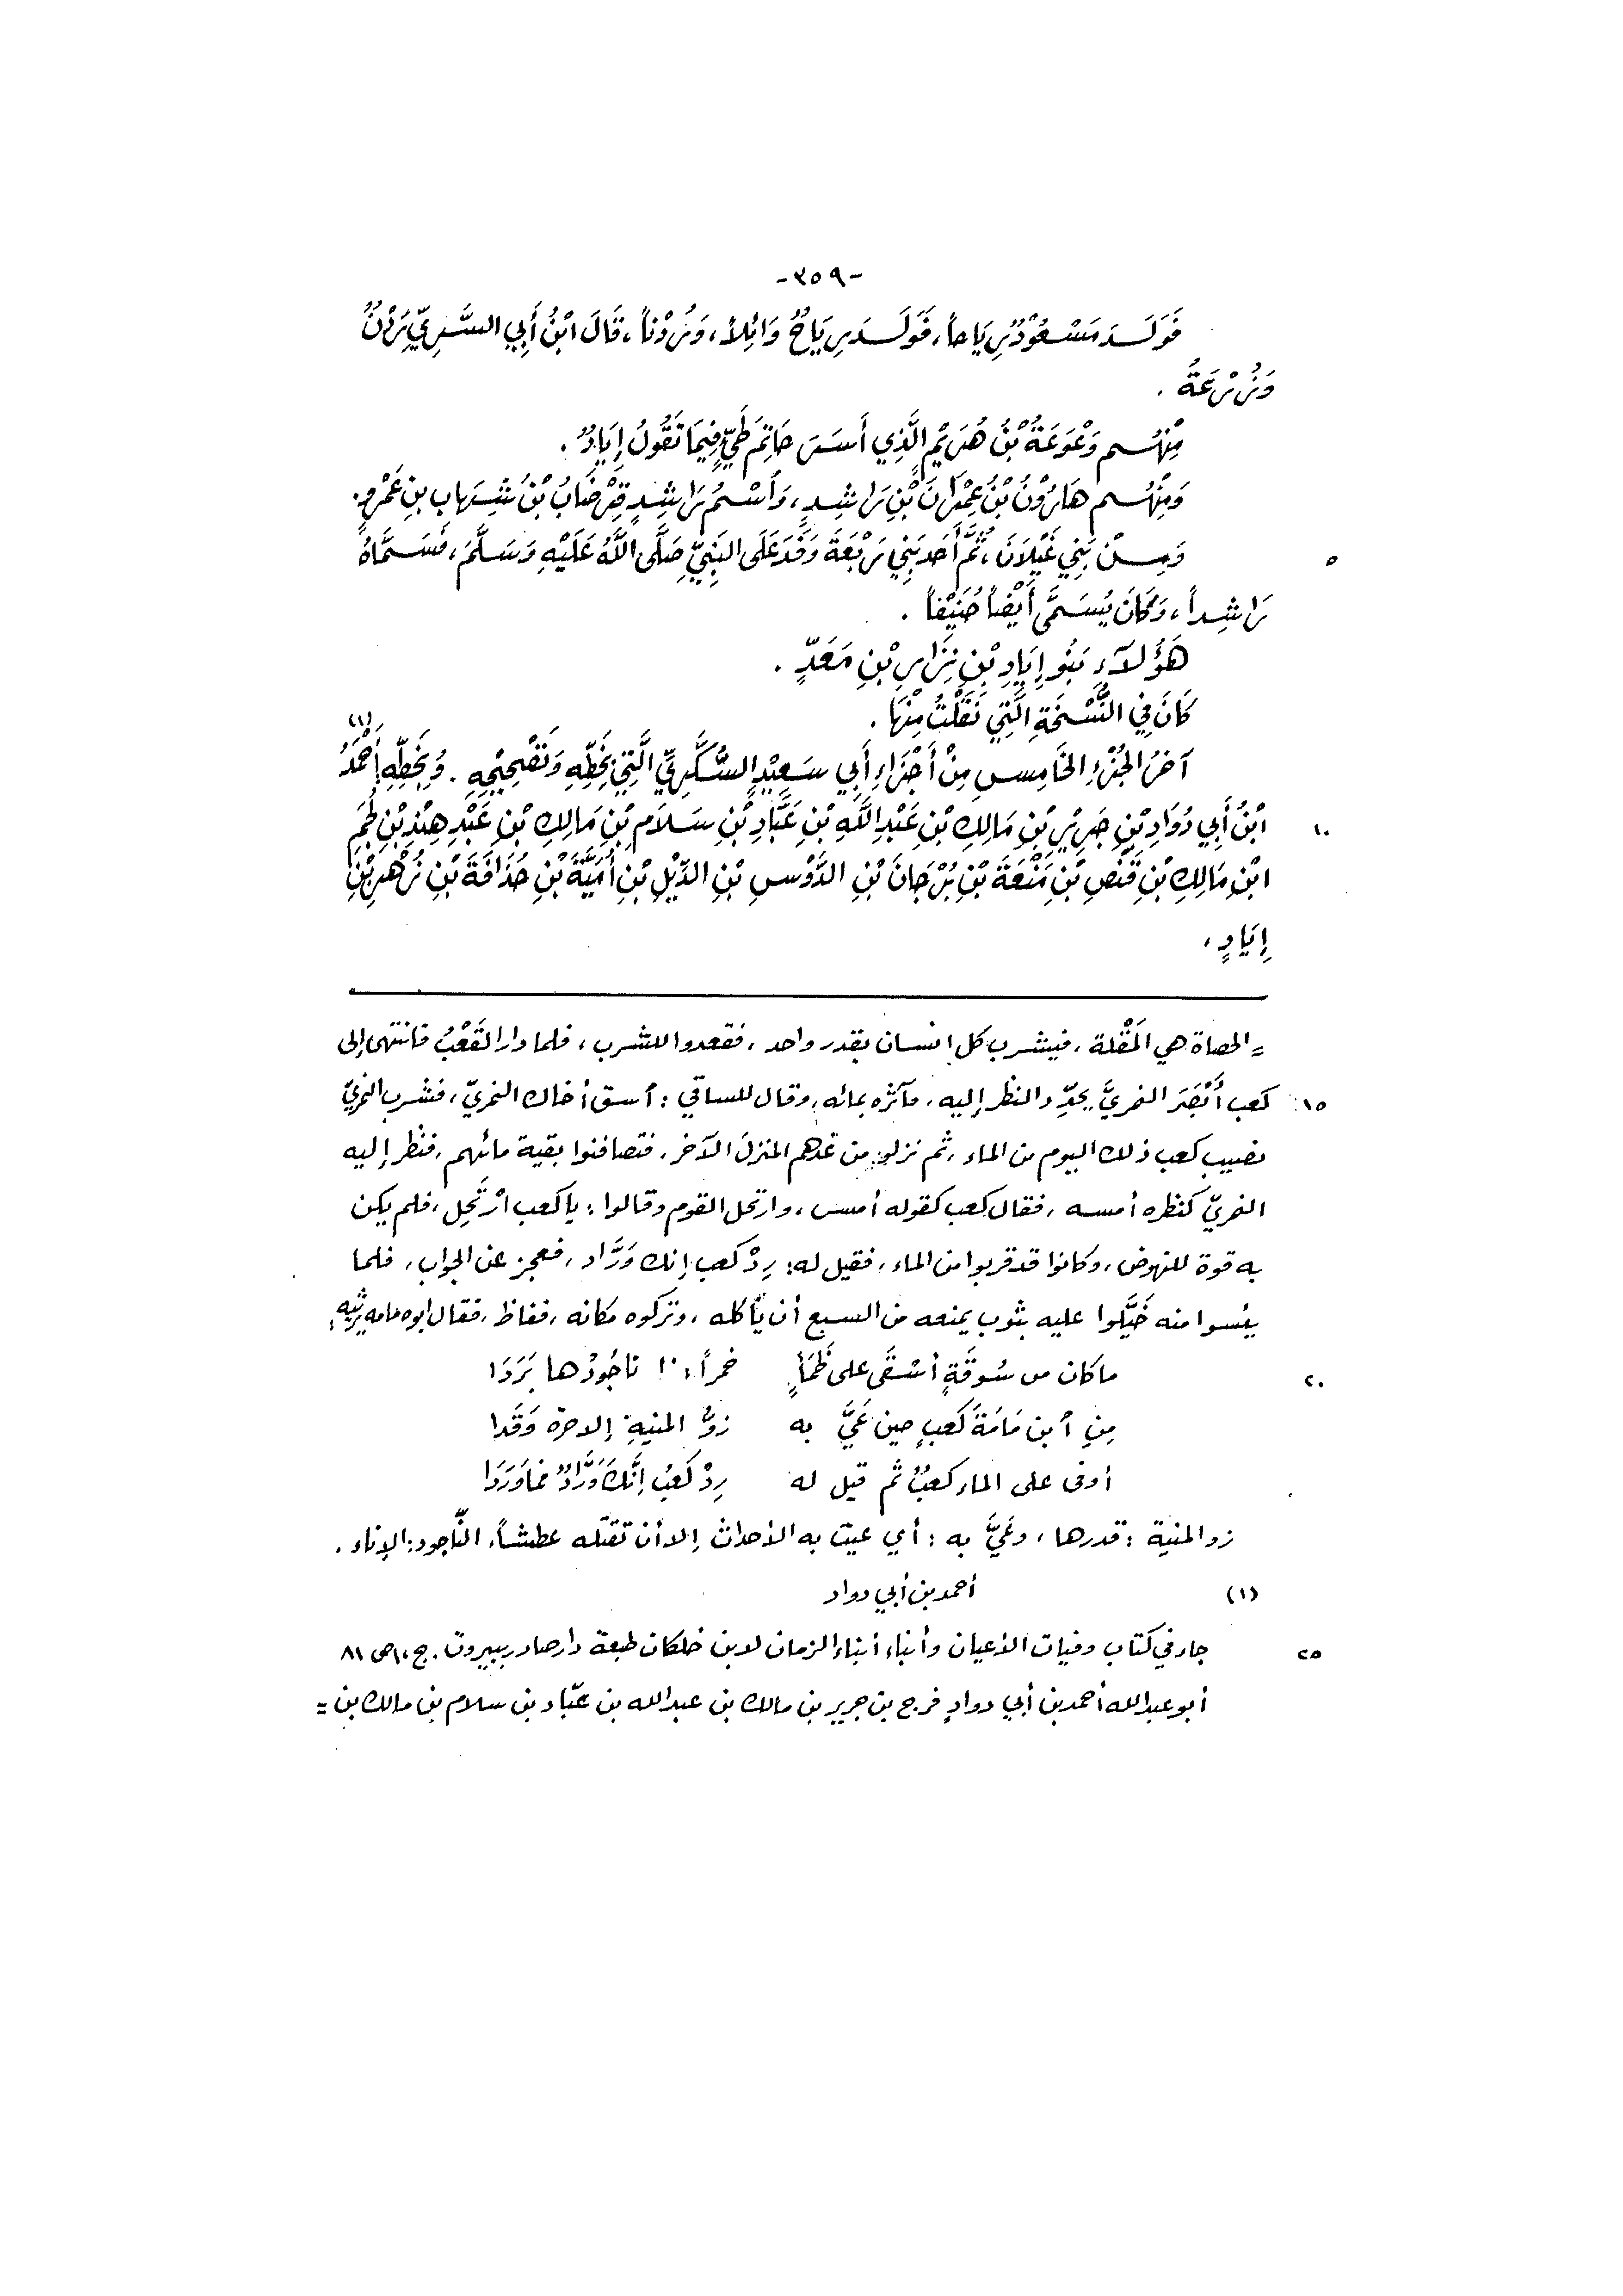 -٣٥٩-
فَوَلَدَ مَسْعُوْدٌ رِيَاحاً، فَوَلَدَ رِيَاحٌ وَائِلاً، وَرُدْناً، قَالَ ابْنُ أَبِي السَّرِيِّ رُدْنٌ
وَزُرْعَةُ .
مِنْهُم وَعْوَعَةُ بْنُ هُرَيْمٍ الَّذِي أَسَرَ حَاتِمَ طَيٍّ فِيمَا تَقُولُ إِيَادٌ .
وَمِنْهُم هَارُوْنُ بْنُ عِمْرَانَ بْنِ رَاشِدٍ، وَأَسْمُ رَاشِدٍ قِرْضَابُ بْنُ شِهَابِ بنِ عَمْرٍو.
٥ وَمِنْ بَنِي غَيْلاَنَ، ثُمَّ أَحَدِ بَنِي رَبْعَةَ وَفَدَ عَلَى النَّبِيِّ صَلَّى اللَّهُ عَلَيْهِ وَسَلَّمَ، فَسَمَّاهُ
رَاشِداً، وَكَانَ يُسَمَّى أَيْضاً حُنَيْفاً .
هَؤُلاَءِ بَنُو إِيَادِ بْنِ نِزَارِ بْنِ مَعَدٍّ .
كَانَ فِي النُّسْخَةِ الَّتِي نَقَلْتُ مِنْهَا .
آخِرُ الجُزْءِ الخَامِسِ مِنْ أَجْزَاءِ أَبِي سَعِيْدٍ السُّكَّرِيِّ الَّتِي بِخَطِّهِ وَتَصْحِيْحِهِ . وَبِخَطِّهِ: أَحْمَدُ (١)
١٠ ابْنُ أَبِي دُوَادِ بْنِ جَرِيْرِ بْنِ مَالِكِ بْنِ عَبْدِ اللَّهِ بْنِ عَبَّادِ بْنِ سَلاَمِ بْنِ مَالِكِ بْنِ عَبْدِ هِنْدِ بْنِ لَخْمِ
ابْنِ مَالِكِ بْنِ قَنَصِ بْنِ مَنْعَةَ بْنِ بُرْجَانَ بْنِ الدَّوْسِ بْنِ الدِّيْلِ بْنِ أُمَيَّةَ بْنِ حُذَافَةَ بْنِ زُهْرِ بْنِ
إِيَادٍ،
= الحصاة هي المَقْلة، فيشرب كل إنسان بقدر واحد، فقعدوا للشرب، فلما دار القَعْبُ فانتهى إلى
١٥ كعب أَبْصَرَ النمريَّ يحدِّد النظر إليه، فآثره بمائه، وقال للساقي: أسق أخاك النمريّ، فشرب النمريّ
نصيب كعب ذلك اليوم من الماء، ثم نزلوا من غدهم المنزلَ الآخر، فتصافنوا بقية مائهم، فنظر إليه
النمريّ كنظره أمسه، فقال كعب كقوله أمس، وارتحل القوم وقالوا: ياكعب ارْتَحِل، فلم يكن
به قوة للنهوض، وكانوا قد قربوا من الماء، فقيل له: رِدْ كعب إنك وَرَّاد، فعجز عن الجواب، فلما
يئسوا منه خَيَّلوا عليه بثوب يمنعه من السبع أن يأكله، وتركوه مكانه، ففاظ، فقال ابوه مامه يرثيه:
٢٠ ما كان من سُوقَةٍ أسْقَى على ظَمَأٍ خمراً إذا ناجُودُها بَرَدَا
مِنِ أبن مَامَةَ كَعبٍ حين عَيَّ به زوُّ المنيةِ إلا حرة وَقَدا
أوفى على الماء كعبٌ ثم قيل له رِدْ كَعبُ إنَّكَ وَرَّادٌ فما وَرَدَا
زو المنية: قدرها، وعَيَّ به: أي عيت به الأحداث إلا أن تقتله عطشاً، النّاجود: الإناء .
(١) أحمد بن أبي دواد
٢٥ جاء في كتاب وفيات الأعيان وأنباء أبناء الزمان لابن خلكان طبعة دار صادر ببيروت. ج،١ ص ٨١
أبو عبد الله أحمد بن أبي دوادٍ فرج بن جرير بن مالك بن عبد الله بن عبّاد بن سلام بن مالك بن =